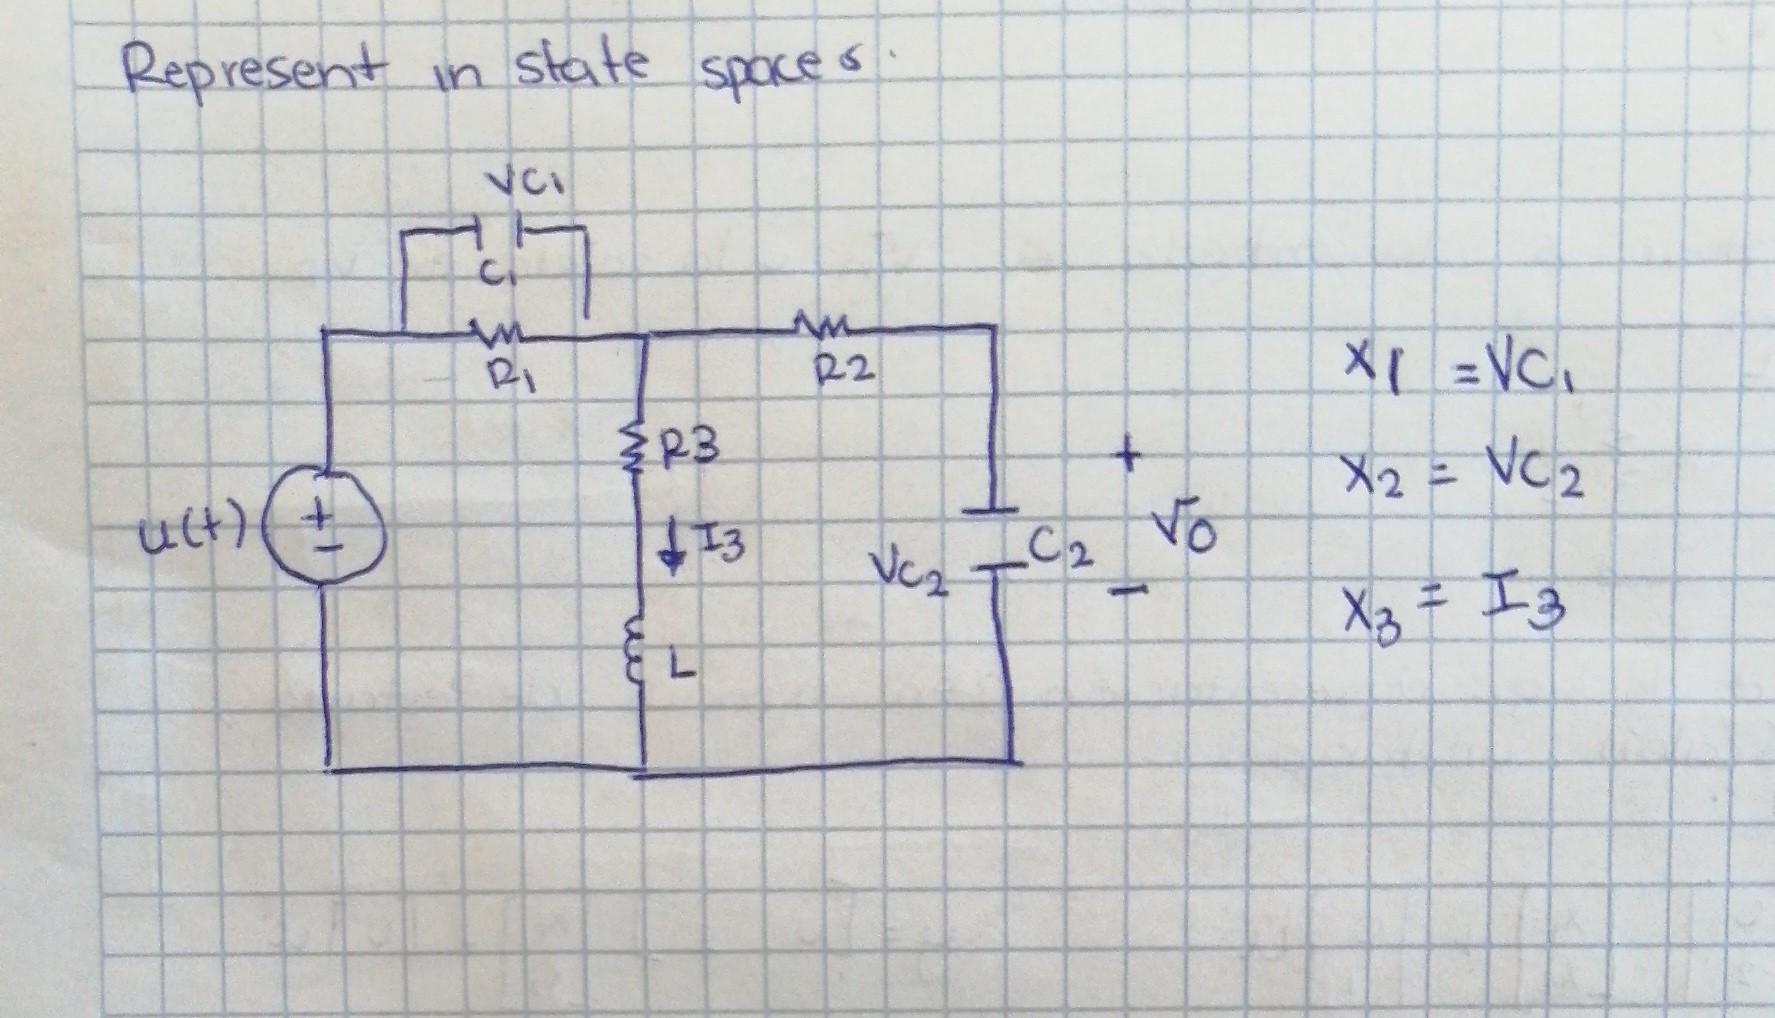 Represent in state spaces.
VC1
C1
R1
R2
R3
u(t)
+
-
I3
L
VC2
C2
+
Vo
-
x1 = VC1
x2 = VC2
x3 = I3